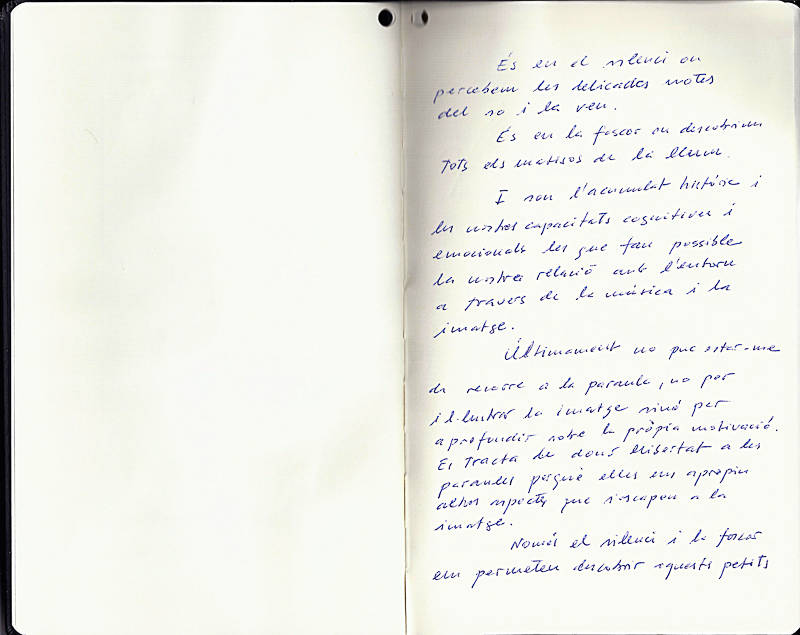 És en el silenci on
percebem les delicades notes
del so i la veu.
És en la foscor on descobrim
Tots els matisos de la llum.
I son l'acumulat històric i
les nostres capacitats cognitives i
emocionals les que fan possible
la nostra relació amb l'entorn
a través de la música i la
imatge.
Últimament no puc estar-me
de recorre a la paraula, no per
il·lustrar la imatge sinó per
aprofundir sobre la pròpia motivació.
Es Tracta de donar llibertat a les
paraules perquè elles ens apropin
altres aspectes que s'escapen a la
imatge.
Només el silenci i la foscor
ens permeten descobrir aquests petits